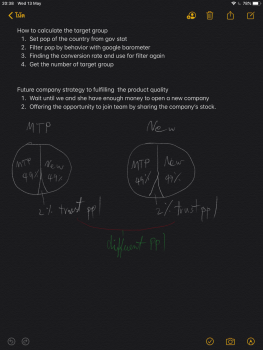 20:38 Wed 13 May
76%
โน้ต
How to calculate the target group
1. Set pop of the country from gov stat
2. Filter pop by behavior with google barometer
3. Finding the conversion rate and use for filter again
4. Get the number of target group
Future company strategy to fulfilling the product quality
1. Wait until we and she have enough money to open a new company
2. Offering the opportunity to join team by sharing the company's stock.
MTP
New
MTP 49%
New 49%
MTP 49%
New 49%
2% trust ppl
2% trust ppl
different ppl